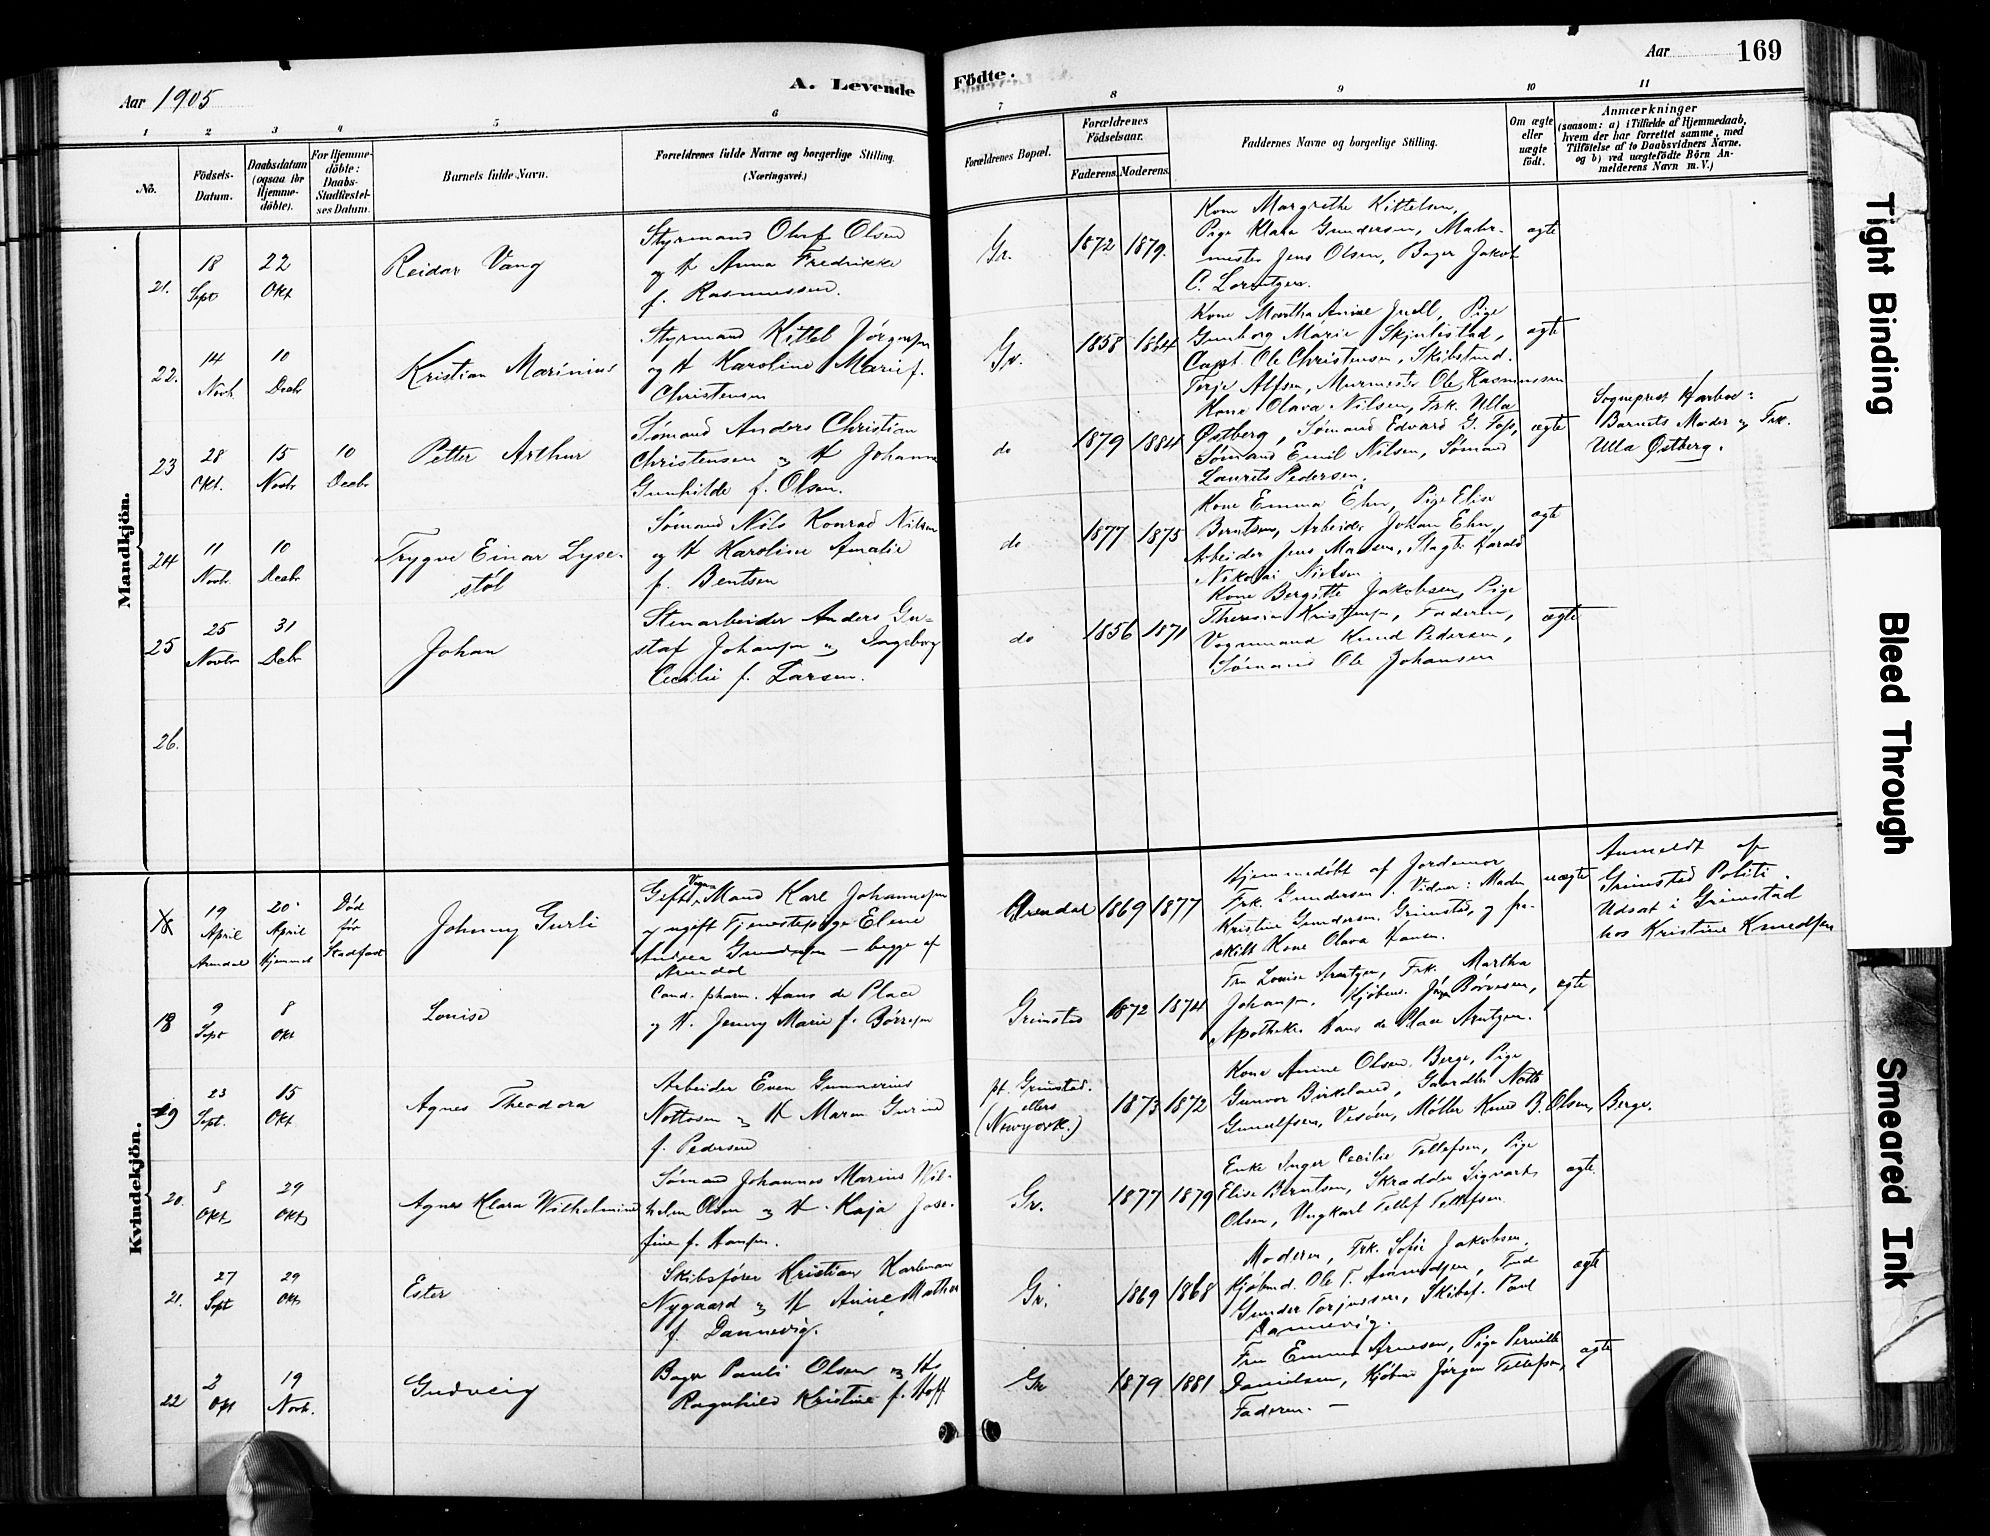 Aar 1905
A. Levende
Födte.
Aar
169
1
2
3
4
5
6
7
8
9
10
11
No.
Födsels-
Datum.
Daabsdatum
(ogsaa for
Hjemme-
döbte).
For Hjemme-
döbte:
Daabs-
Stadfæstel-
ses Datum.
Barnets fulde Navn.
Forældrenes fulde Navne og borgerlige Stilling.
(Næringsvei.)
Forældrenes Bopæl.
Forældrenes
Födselsaar.
Faderens.
Moderens.
Faddernes Navne og borgerlige Stilling.
Om ægte
eller
uægte
födt.
Anmærkninger
(saasom: a) i Tilfælde af Hjemmedaab,
hvem der har forrettet samme, med
Tilföielse af to Daabsvidners Navne,
og b) ved uægtefödte Börn An-
melderens Navn m. V.)
Mandkjön.
21.
18
Sept
22
Okt
Reidar Vang
Styrmand Oluf Olsen
og H Anna Fredrikke
f. Rasmussen.
Gr.
1872
1879.
Kone Margrethe Kittelsen,
Pige Klara Gundersen, Maler-
mester Jens Olsen, Bager Jakob
C. Lorentzen.
ægte
22.
14
Novb.
10
Decbr
Kristian Marinius
Styrmand Kittel Jörgensen
og H Karoline Marie f.
Christensen
Gr.
1858
1864
Kone Martha Anine Juell, Pige
Gunborg Marie Skjulestad,
Capt. Ole Christensen, Skibstmd.
Terje Alfsen, Murmester Ole Rasmussen
ægte
23
28
Okt.
15
Novbr
10
Decbr
Petter Arthur
Sømand Anders Christian
Christensen og H Johanne
Gunhilde f. Olsen.
do
1879
1884
Kone Olava Nilsen, Frk. Ulla
Østberg, Sømand Edvard G. Foss,
Sømand Emil Nilsen, Sømand
Laurits Pedersen.
ægte
Sogneprest Harboe:
Barnets Moder og Frk.
Ulla Østberg.
24
11
Novbr.
10
Decbr
Trygve Einar Lyse-
støl
Sømand Nils Konrad Nilsen
og H Karoline Amalie
f. Bentsen
do
1877
1875
Kone Emma Ehn, Pige Elise
Berntsen, Arbeider Johan Ehn,
Arbeider Jens Madsen, Slagt. Harald
Nikolai Nielsen
ægte
25
25
Novbr
31
Debr
Johan
Stenarbeider Anders Gu-
staf Johansen og Ingeborg
Cecilie f. Larsen.
do
1856
1871
Kone Bergitte Jakobsen, Pige
Theresia Kristensen, Faderen,
Vognmand Knud Pedersen,
Sømand Ole Johansen
ægte
26.
Kvindekjön.
19
April
Arendal
20
April
Hjemmed
Död
før
Stadfæst
Johnny Gurli
Gift Vognmand Karl Johannesen
og ugift Tjenestepige Eline
Andrea Gundersen — begge af
Arendal
Arendal
1869
1877
Hjemmedøbt af Jordemor
Frk. Gundersen. Vidner: Maden
Kristine Gundersen Grimstad, og fra-
skilt Kone Olava Hansen.
uægte
Anmeldt af
Grimstad Politi.
Udsat i Grimstad
hos Kristine Knudsen
18
9
Sept
8
Okt
Louise
Cand. pharm. Hans de Place
og H. Jenny Marie f. Børresen
Grimstad
1872
1874
Fru Louise Arntzen, Frk. Martha
Johansen, Kjøbmd. Børresen,
Apotheker Hans de Place Arntzen.
ægte
19
23
Sept.
15
Okt.
Agnes Theodora
Arbeider Even Gunnerius
Nottosen og H Maren Gurine
f. Pedersen
pt. Grimstad.
ellers
(Newyork.)
1873
1872
Kone Anine Olsen Berge, Pige
Gunvor Birkeland, Gaardbr. Notto
Gunulfsen, Vesøen, Møller Knud B. Olsen, Berge.
20.
8
Okt
29
Okt
Agnes Klara Wilhelmine
Sømand Johannes Marius Wil-
helm Olsen og H. Kaja Jose-
fine f. Hansen.
Gr.
1877
1879
Enke Inger Cecilie Tellefsen, Pige
Elise Berntsen, Skrædder Sigvart
Olsen, Ungkarl Tellef Tellefsen.
ægte
21.
27
Sept
29
Okt
Ester
Skibsfører Kristian Karleman
Nygaard og H Anine Mathea
f. Dannevig.
Gr.
1869
1868
Moderen, Frk. Sofie Jakobsen,
Kjøbmd. Ole T. Amundsen,
Gunder Torjussen, Skibsf. Poul
Dannevig.
ægte
22
2
Okt
19
Novb.
Gudveig
Bager Pauli Olsen og H
Ragnhild Kristine f. Hoff
Gr
1879
1881
Fru Emma Arnesen, Pige Pernille
Danielsen, Kjøbmd Jørgen Tellefsen,
Faderen. —
ægte
Tight Binding
Bleed Through
Smeared Ink